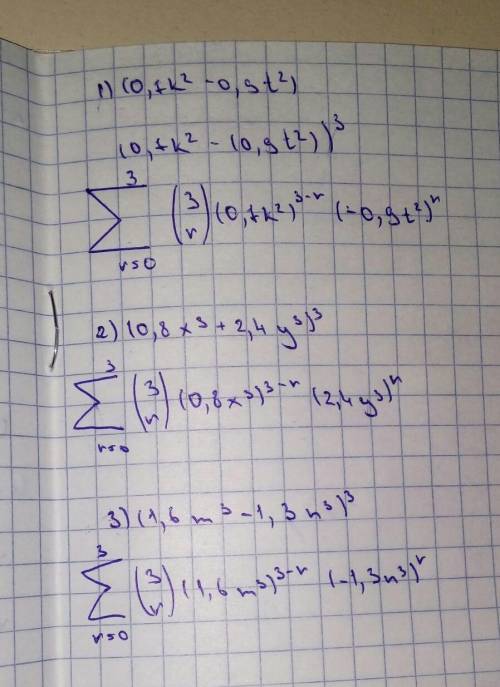 1) (0,7k² - 0,9t²)
(0,7k² - (0,9t²))³
3
∑ (3 r) (0,7k²)³⁻ʳ (-0,9t²)ʳ
r=0
2) (0,8x³ + 2,4y³)³
3
∑ (3 r) (0,8x³)³⁻ʳ (2,4y³)ʳ
r=0
3) (1,6m³ - 1,3n³)³
3
∑ (3 r) (1,6m³)³⁻ʳ (-1,3n³)ʳ
r=0